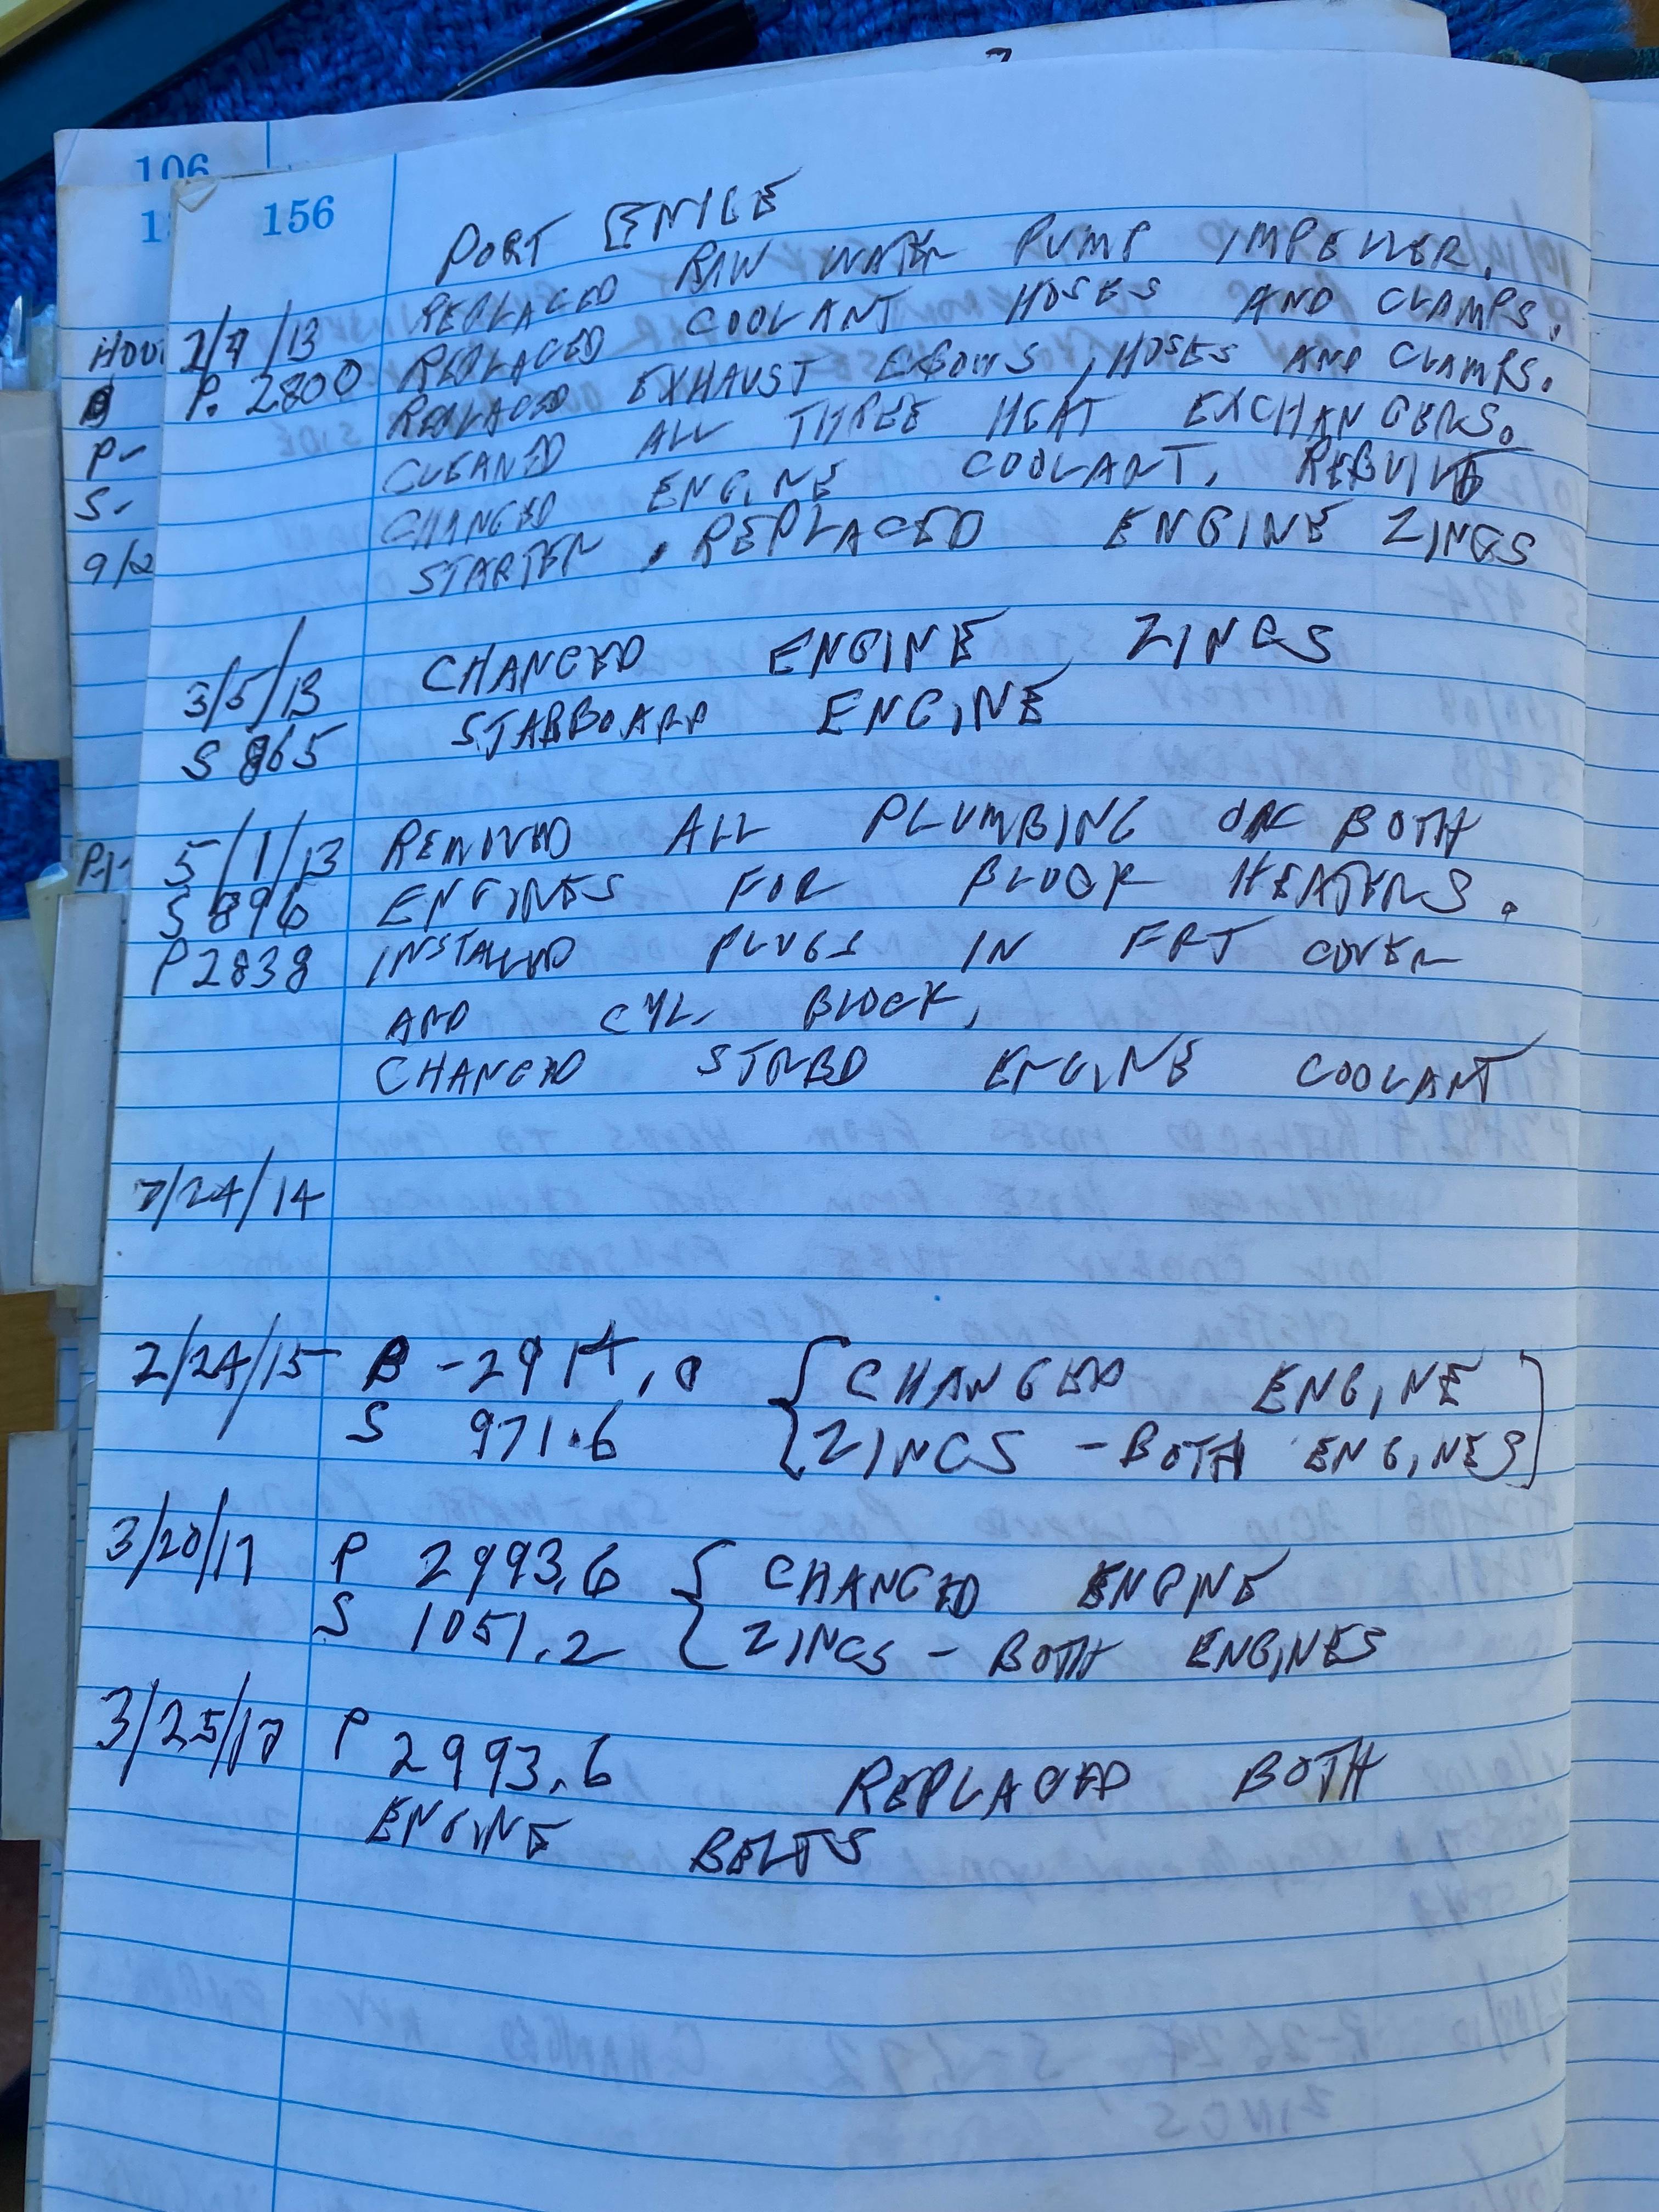 106
156
PORT ENIGE
2/7/13 REPLACED RAW WATER PUMP IMPELLER.
P. 2800 REPLACED COOLANT HOSES AND CLAMPS.
REPLACED EXHAUST ELBOWS, HOSES AND CLAMPS.
CLEANED ALL THREE HEAT EXCHANGERS.
CHANGED ENGINE COOLANT, REBUILT
STARTER, REPLACED ENGINE ZINCS
3/5/13 CHANGED ENGINE ZINCS
S 865 STARBOARD ENGINE
5/1/13 REMOVED ALL PLUMBING ON BOTH
S 896 ENGINES FOR BLOCK HEATERS.
P 2838 INSTALLED PLUGS IN FRT COVER
AND CYL. BLOCK,
CHANGED STRBD ENGINE COOLANT
7/24/14
2/24/15 P - 2914.0 { CHANGED ENGINE
S 971.6 ZINCS - BOTH ENGINES }
3/20/17 P 2993.6 { CHANGED ENGINE
S 1051.2 ZINCS - BOTH ENGINES
3/25/17 P 2993.6 REPLACED BOTH
ENGINE BELTS
P-
S-
9/2